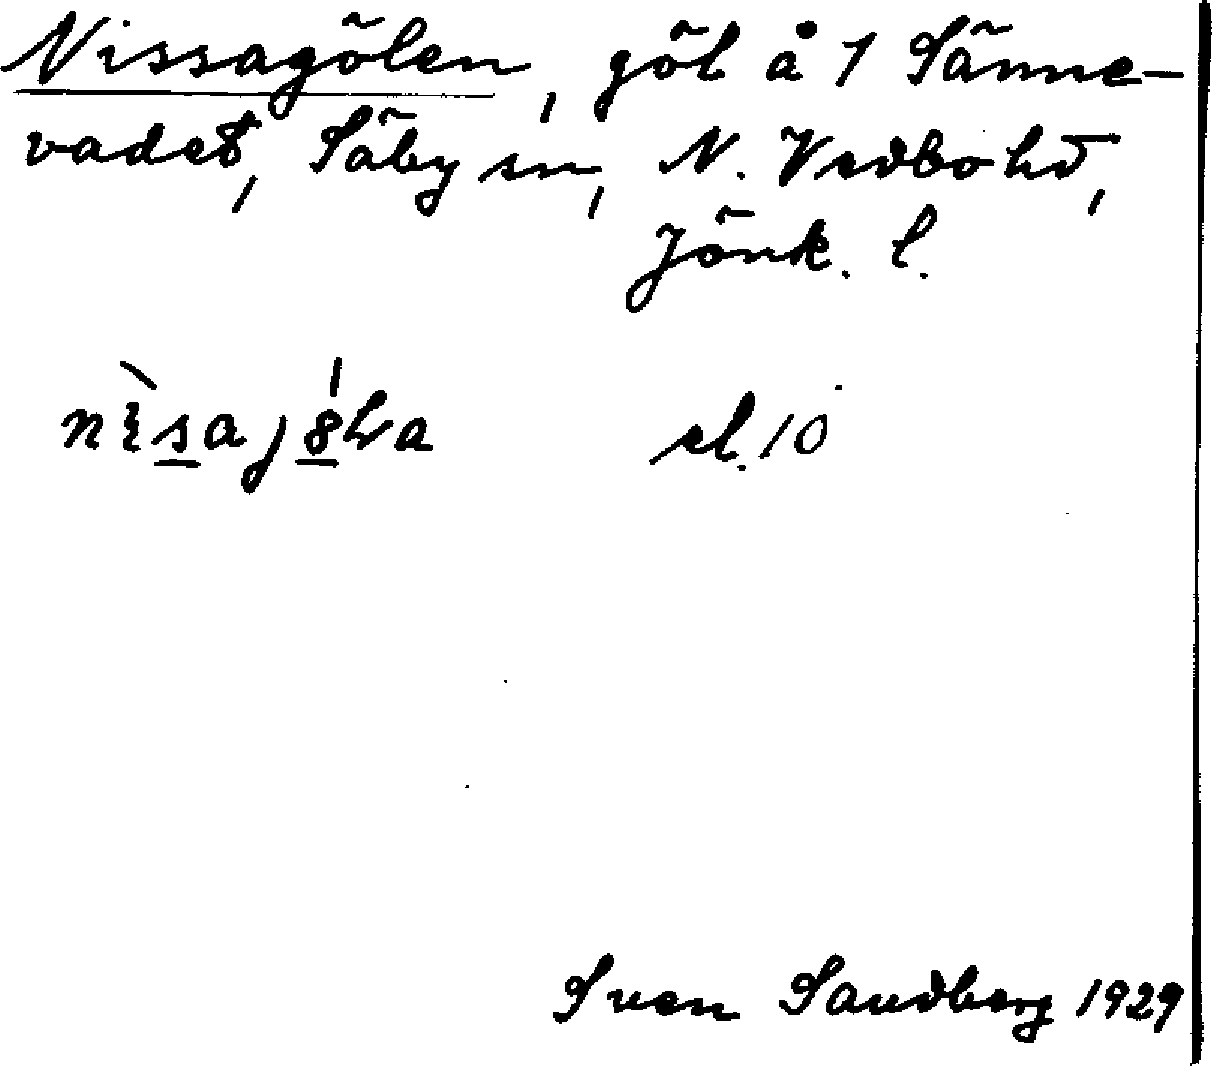 Nissagölen, göl å 1 Sänne-
vadet, Säby sn, N. Vedbo hd,
Jönk. l.
el. 10
Sven Sandberg 1929